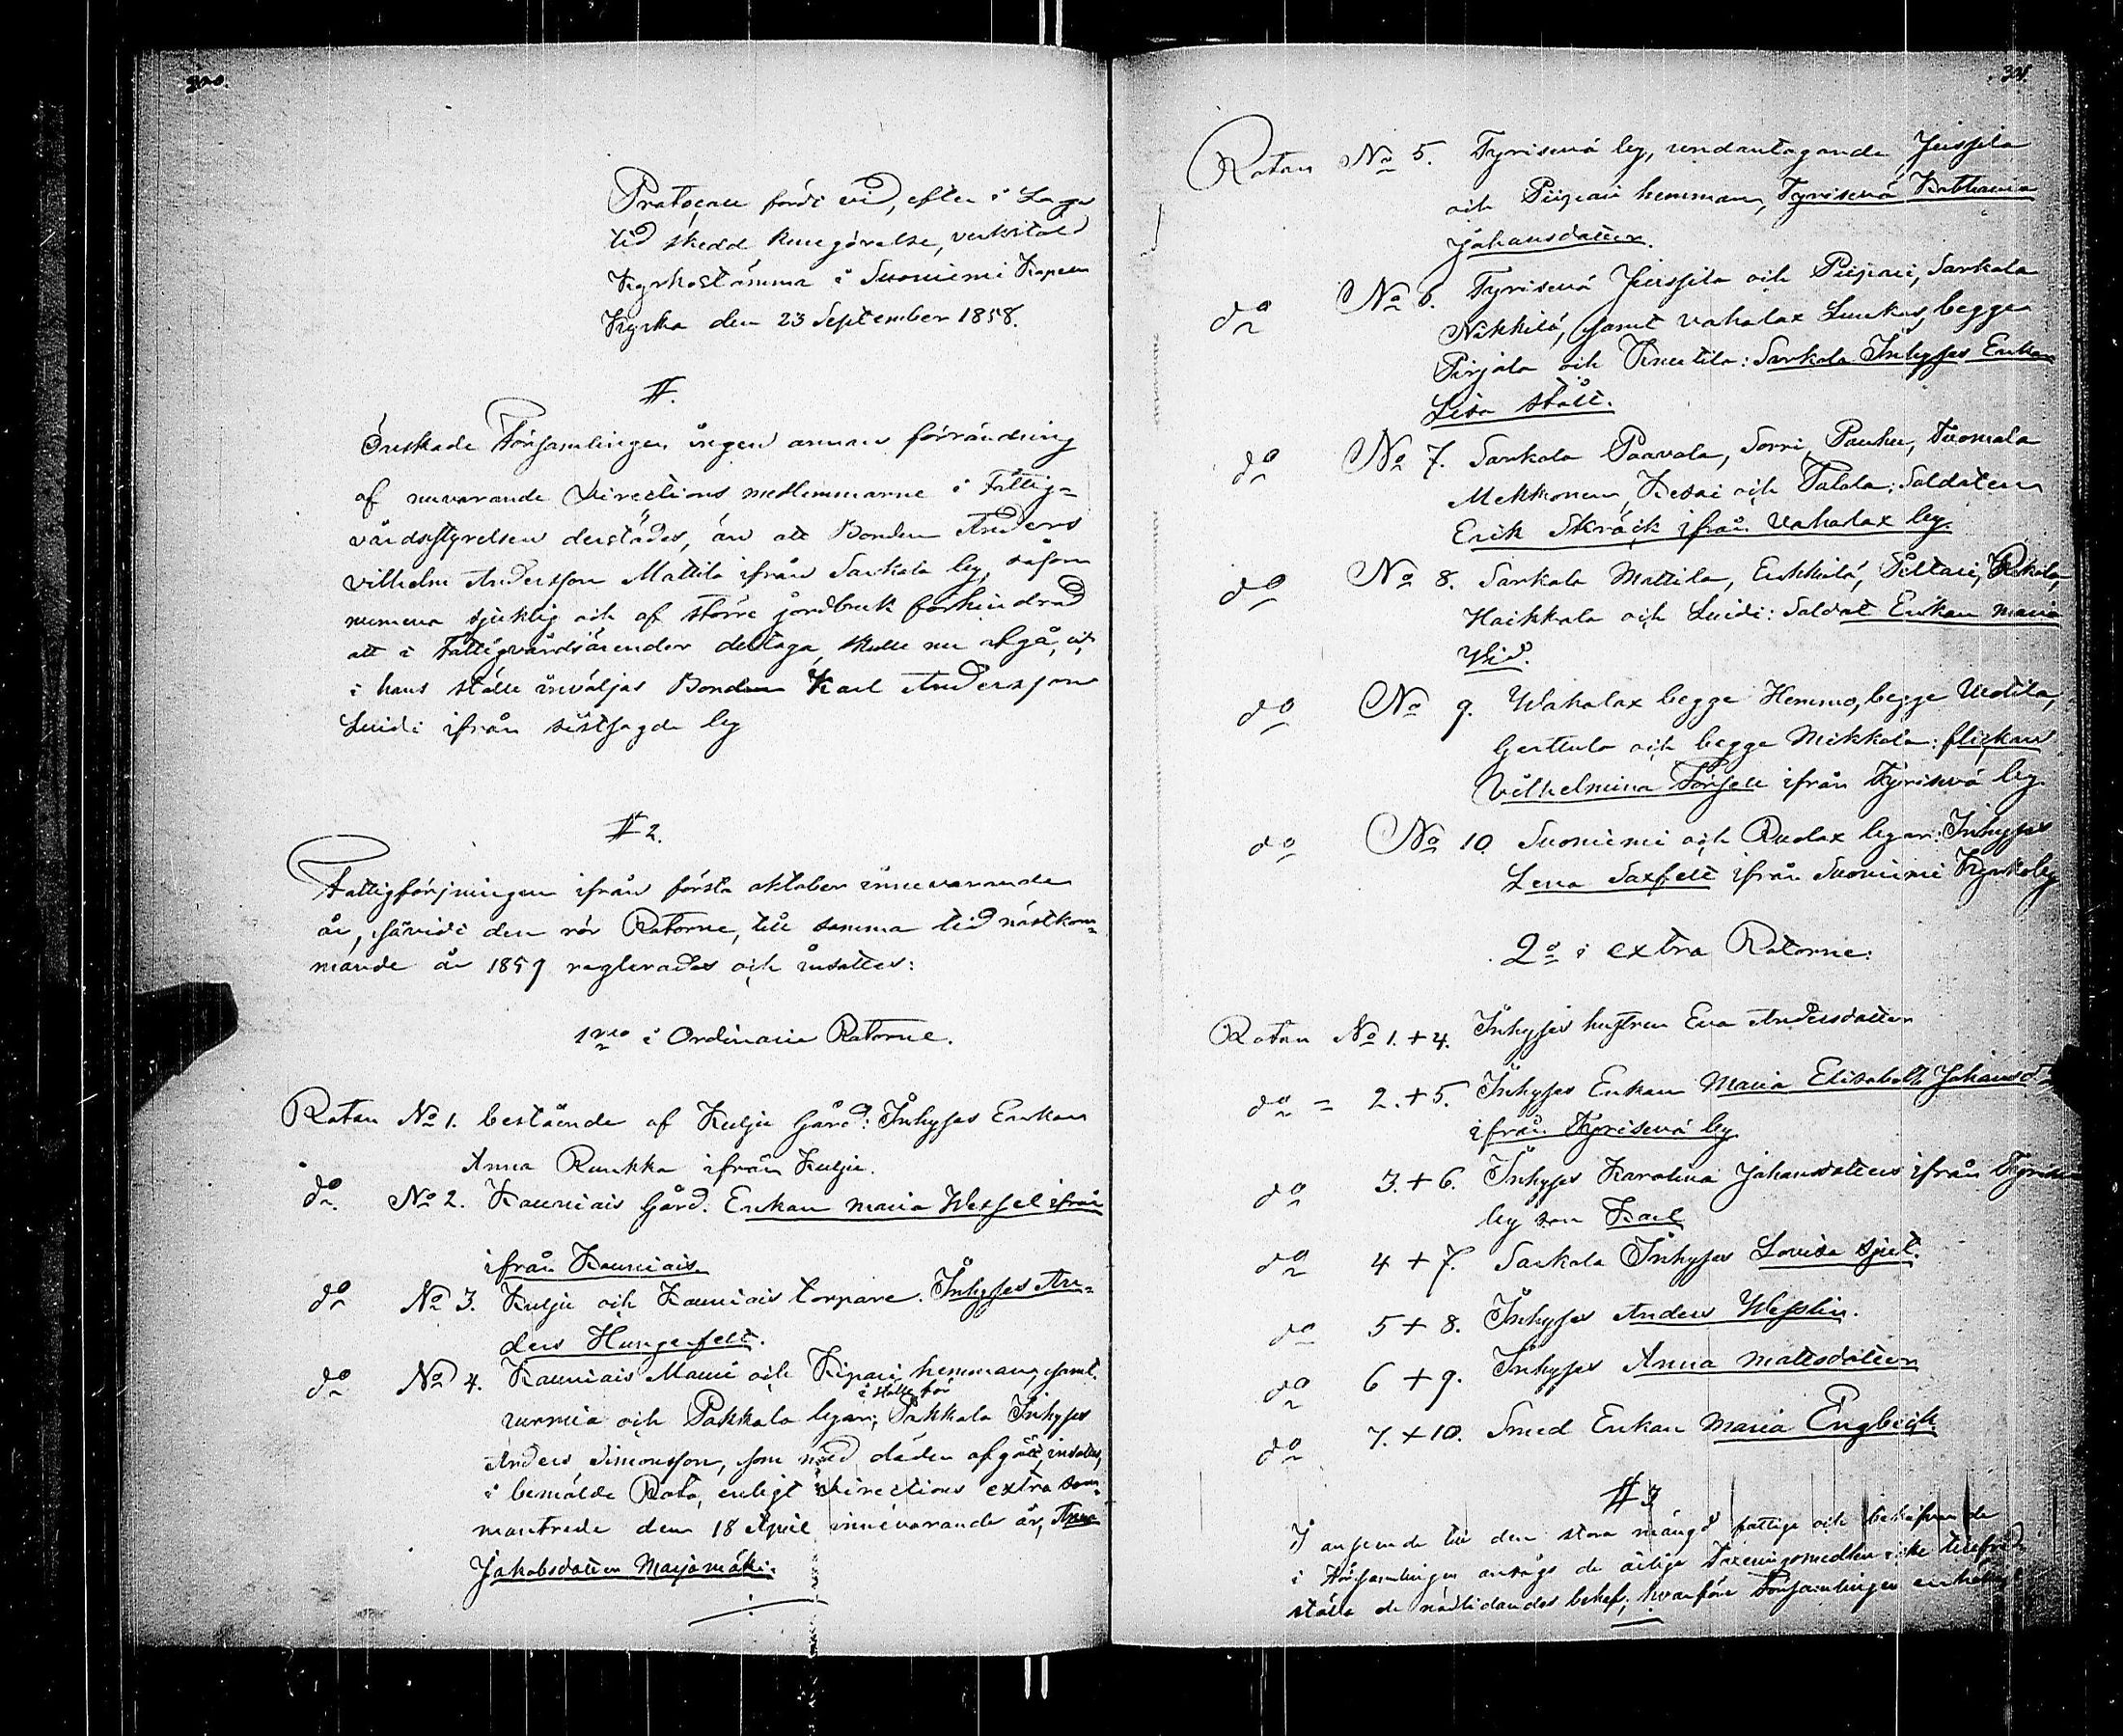 320.
Protocoll fördt vid, efter i Laga
tid skedd kungörelse, verkstäld
Kyrkostämma i Suoniemi Kapell
Kyrka den 23 September 1858.
§.
Önskade Församlingen ingen annan förändring
af nuvarande Directions medlemmarne i Fattig-
vårdsstyrelsen derstädes, än att Bonden Anders
Vilhelm Andersson Mattila ifrån Sarkola by, såsom
numera sjuklig och af större jordbruk förhindrad
att i Fattigvårdsärender deltaga, skulle nu afgå, och
i hans ställe inväljas Bonden Karl Andersson
Luidi ifrån sistsagde by
§ 2.
Fattigförsörjningen ifrån första oktober innevarande
år, såvidt den rör Rotorne, till samma tid nästkom-
mande år 1859 reglerades och insattes:
1mo i Ordinarie Rotorne.
Rotan No 1. bestående af Kulju Gård: Inhyses Enkan
Anna Runkka ifrån Kulju.
do No 2. Kauniais Gård. Enkan Maria Wessel ifrån
ifrån Kauniais.
do No 3. Kulju och Kauniais torpare. Inhyses An-
ders Hungerfelt.
do No 4. Kauniais Mauri och Kipari hemman, samt
i stället för
Turmia och Pakkala byar; Pakkala Inhyses
Anders Simonsson, som med döden afgått, insattes,
i bemälde Rota, enligt Directions extra sam-
manträde den 18 April innevarande år, Anna
Jakobsdotter Marjamäki.
321.
Rotan No 5. Tyrisevä by, undantagande Jussila
och Piipari hemman, Tyrisevä Katharina
Johansdotter.
do No 6. Tyrisevä Jussila och Piipari, Sarkola
Nikkilä, samt Vahalax Luukas, begge
Pirjola och Knuutila: Sarkola Inhyses Enkan
Lisa Stolt.
do No 7. Sarkola Paavola, Sorri, Pauhu, Tuomala
Mekkonen, Kesäi och Talola: Soldaten
Erik Skräck ifrån Vahalax by.
do No 8. Sarkola Mattila, Erkkilä, Piltari,
Haikkala och Luidi: Soldat Enkan Maria
Wid.
do No 9. Wahalax begge Hemmo, begge Uotila,
Gerttula och begge Mikkola: flickan
Vilhelmina Forsell ifrån Tyrisevä by.
do No 10. Suoniemi och Rudax byar: Inhyses
Lena Saxfelt ifrån Suoniemi Kyrkoby
2o i extra Rotorne:
Rotan No 1. + 4. Inhyses hustrun Eva Andersdotter
do = 2. + 5. Inhyses Enkan Maria Elisabeth Johansd
ifrån Tyrisevä by
do 3. + 6. Inhyses Karolina Johansdotters ifrån Tyrisevä
by son Karl
do 4 + 7. Sarkola Inhyses Lovisa Spet.
do 5 + 8. Inhyses Anders Wesslin.
do 6 + 9. Inhyses Anna Mattsdotter
do 7. + 10. Smed Enkan Maria Engberg.
§ 3
I anseende till den stora mängd fattige och behöfvande
i Församlingen ansågs de årlige Taxeringsmedlen icke tillfreds
ställa de nödlidandes behof; hvarföre Församlingen enhälligt